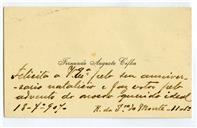 Fernando Augusto Coffen
Felicita a V. Exª pelo seu anniver-
sario natalicio e faz votos pelo
advento do nosso querido ideal
18-7-907 R. do Sº do Monte-11-1º